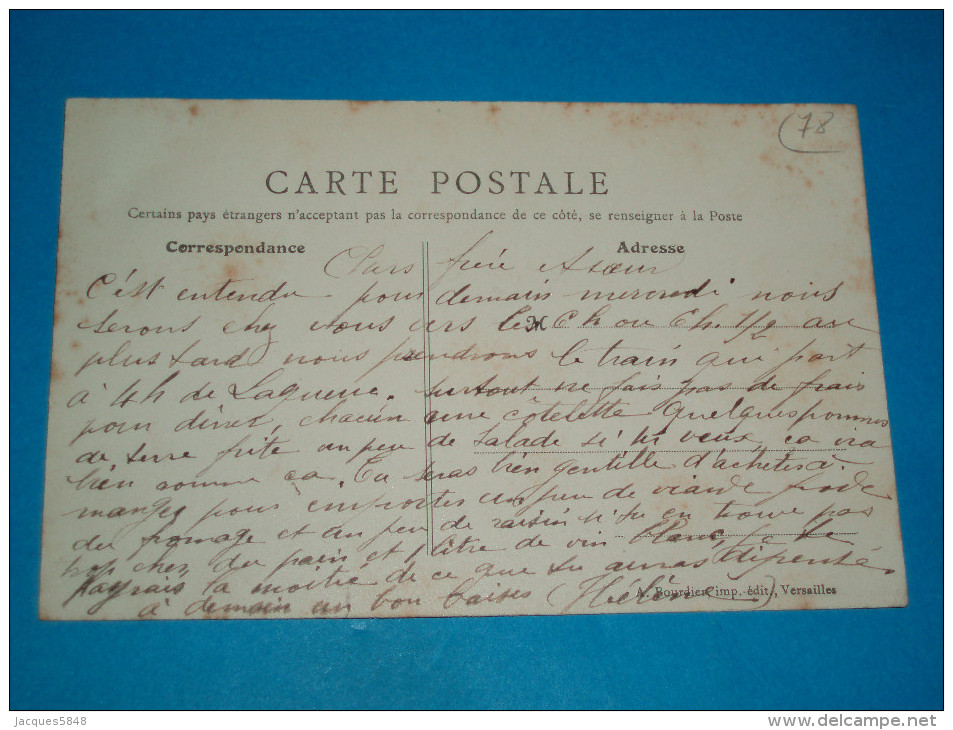 78
CARTE POSTALE
Certains pays étrangers n'acceptant pas la correspondance de ce côté, se renseigner à la Poste
Correspondance
Adresse
frère soeur
C'est entendu pour demain mercredi nous
serons chez vous vers ou 1/2 au
plus tard nous prendrons le train qui part
à 4h de Laqueue. surtout ne fais pas de frais
pour diner, chacun une côtelette quelques pommes
de terre frite un peu de salade si tu veux, ça ira
bien comme ça. Tu seras bien gentille d'acheter à
manger pour emporter un peu de viande froide
du fromage et un peu de raisin si tu en trouve pas
trop cher du pain et 1 litre de vin blanc, je te
payrais la moitié de ce que tu auras dépensé.
à demain un bon baiser (Hélène)
A. Bourdier imp.-édit., Versailles
Jacques5848
www.delcampe.net